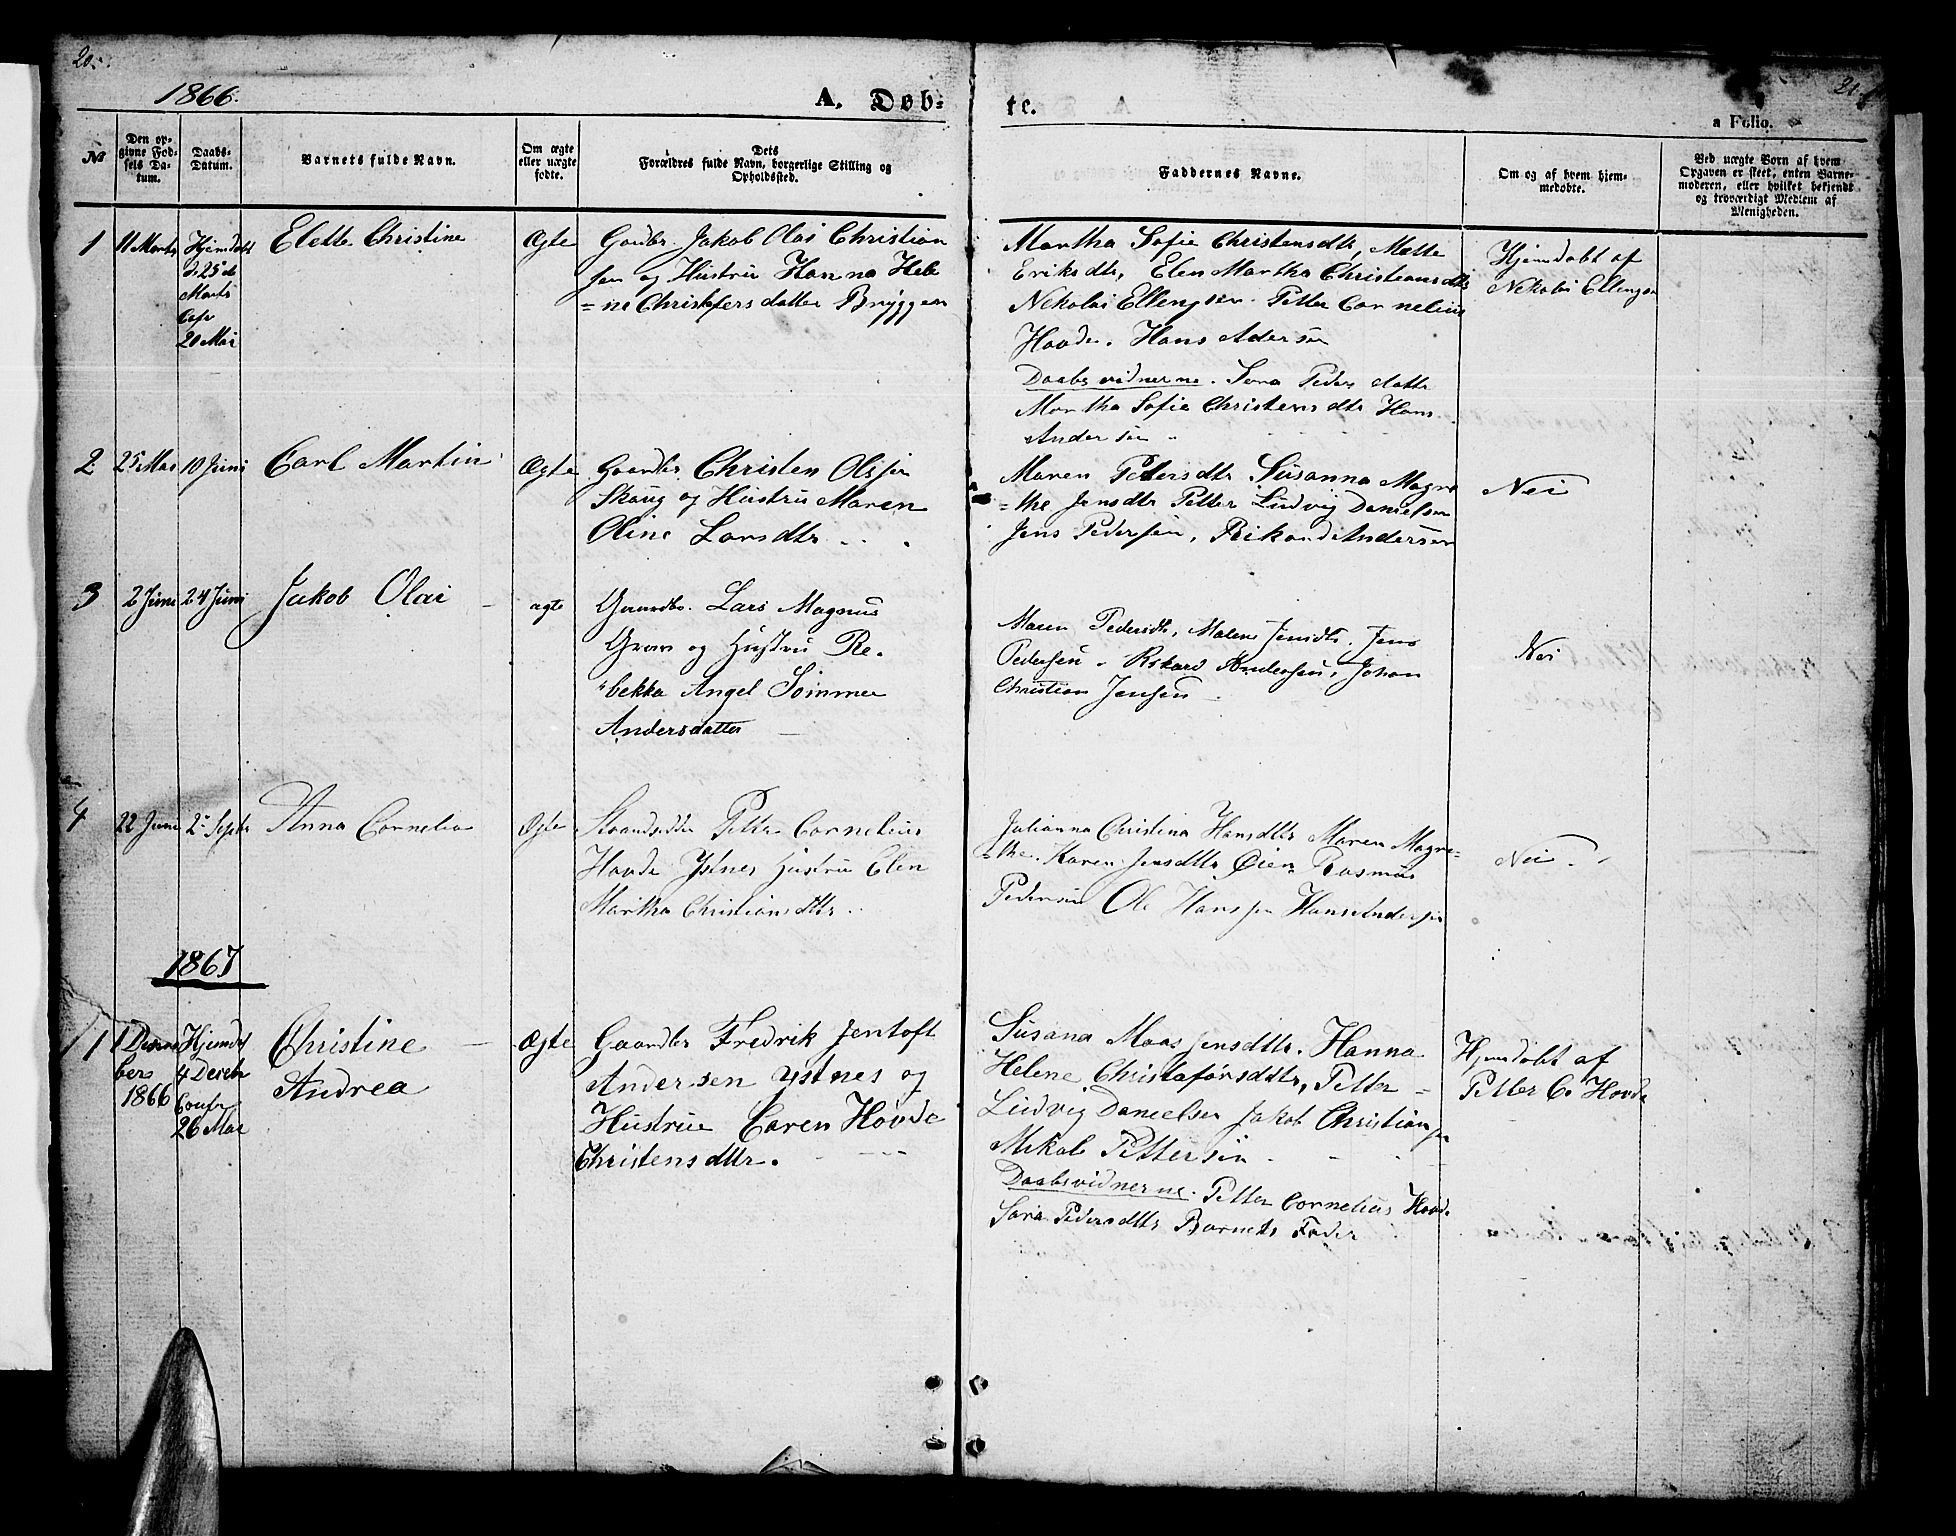 20.
21.
1866.
A. Døb-
te.
a Folio.
№
Den op-
givne Fød-
sels Da-
tum.
Daabs-
Datum.
Barnets fulde Navn.
Om ægte
eller uægte
fødte.
Dets
Forældres fulde Navn, borgerlige Stilling og
Opholdssted.
Faddernes Navne.
Om og af hvem hjem-
medøbte.
Ved uægte Børn af hvem
Opgaven er skeet, enten Barne-
moderen, eller hvilket bekjendt
og troværdigt Medlem af
Menigheden.
1
11 Marts
Hjemdøbt
d. 25de
Marts
20 Mai
Elette Christine
Ægte
Gaardbr. Jakob Olai Christian
sen og Hustru Hanna Hele
=ne Christofersdatter Bryggen
Martha Sofie Christensdtr, Mette
Eriksdtr, Elen Martha Christiansdtr
Nekolai Ellengsen. Petter Cornelius
Hovde. Hans Adersen
Daabsvidnerne. Sara Peders datter
Martha Sofie Christensdtr Hans
Andersen
Hjemdøbt af
Nekolai Ellengsen
2
25 Mai
10 Juni
Carl Martin
Ægte
Gaardbr Christen Olssen
Skaug og Hustru Maren
Oline Larsdtr
Maren Petersdtr Susanna Magre
=the Jensdtr Petter Ludvig Danielsen
Jens Pedersen, Rikard Andersen
Nei
3
2 Juni
24 Juni
Jakob Olai
ægte
Gaardbr. Lars Magnus
Gram og Hustru Re-
bekka Angel Sømmer
Andersdatter
Maren Pedersdtr, Malene Jensdtr, Jens
Pedersen. Rikard Andersen, Johan
Christian Jensen
Nei
4
22 Juni
2 Septr
Anna Cornelia
Ægte
Strandsidder Petter Cornelius
Hovde Ystnes Hustru Elen
Martha Christiansdtr
Julianna Christina Hansdtr Maren Magre=
=the. Karen Jensdtr Øien Rasmus
Pedersen Ole Hanssen Hans Anderssen
Nei
1867
1
1 Decem
bers
1866
Hjemdøbt
4 Decebr
Confr
26 Mai
Christine
Andrea
Ægte
Gaardbr Fredrik Jentoft
Andersen Ystnes og
Hustrue Caren Hovde
Christensdtr.
Susana Maas Jensdtr. Hanna
Helene Christoførsdtr, Petter
Ludvig Danielsen Jakob Christiansen
Mikal Pettersen
Daabsvidnerne. Petter Cornelius Hovde
Sara Pedersdtr Barnets Fader
Hjemdøbt af
Petter C. Hovde